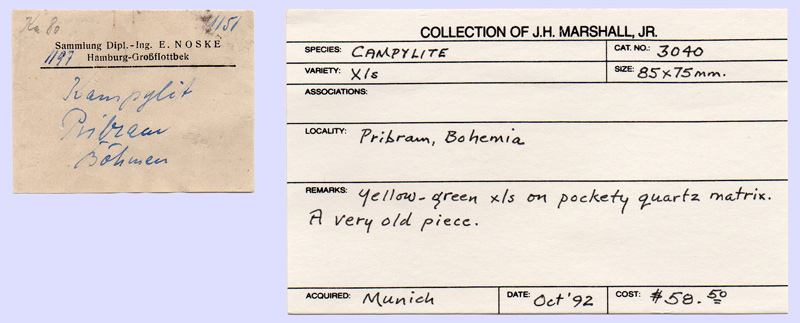 Ka 80
1151
Sammlung Dipl.-Ing. E. NOSKE
1197 Hamburg-Großflottbek
Kampylit
Pribram
Böhmen
COLLECTION OF J.H. MARSHALL, JR.
SPECIES: CAMPYLITE
CAT. NO.: 3040
VARIETY: Xls
SIZE: 85x75mm.
ASSOCIATIONS:
LOCALITY: Pribram, Bohemia
REMARKS: Yellow-green xls on pockety quartz matrix.
A very old piece.
ACQUIRED: Munich
DATE: Oct '92
COST: $58.50